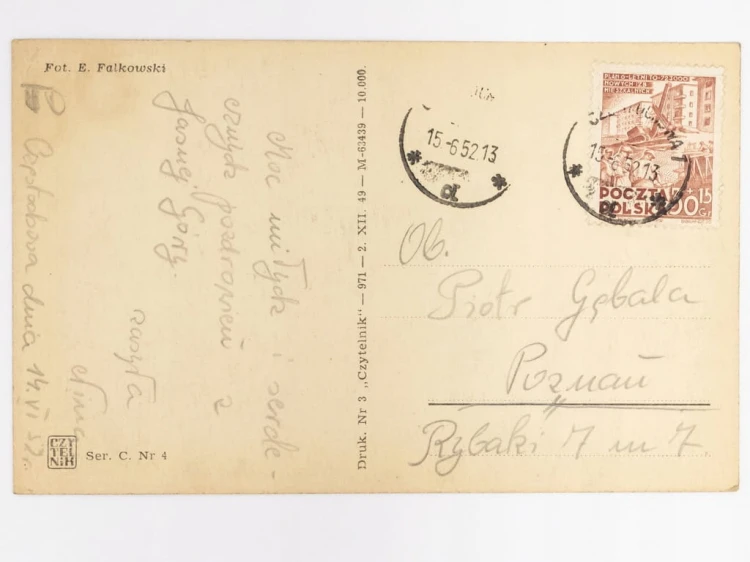 Fot. E. Falkowski
Częstochowa dnia 14. VI 52 r.
Moc miłych i serde-
cznych pozdrowień z
Jasnej Góry.
zasyła
Nina
CZY
TEL
NIK
Ser. C. Nr 4
Druk. Nr 3 „Czytelnik" — 971 — 2. XII. 49 — M-63439 — 10.000.
15-6.52.13
d
15-6.52.13
d
PLAN 6-LETNI TO 723000
NOWYCH IZB
MIESZKALNYCH
POCZTA
POLSKA
+15
Gr
Ob.
Piotr Gębala
Poznań
Rybaki 7 m 7.